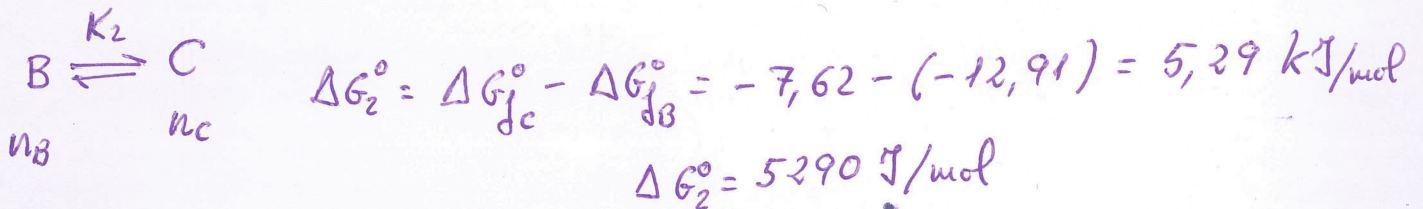 K₂
B ⇌ C ΔG₂° = ΔG°fC - ΔG°fB = -7,62 - (-12,91) = 5,29 kJ/mol
nB nC
ΔG₂° = 5290 J/mol